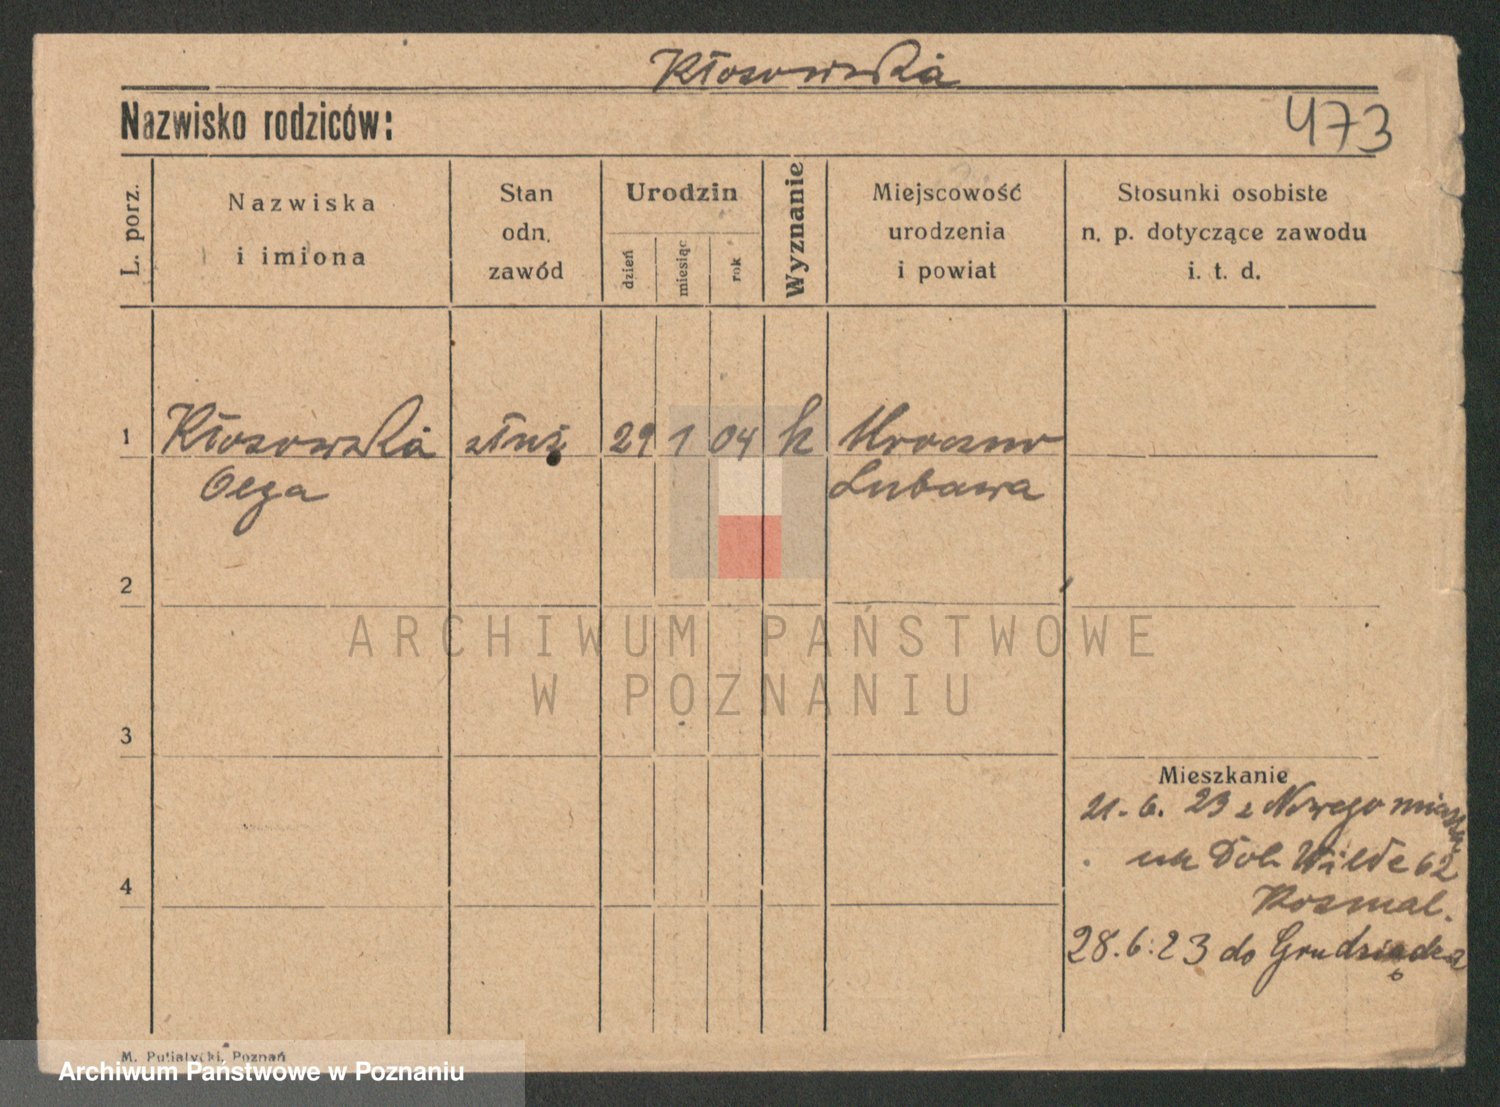 Kłosowska
Nazwisko rodziców:
473
L. porz.
Nazwiska
i imiona
Stan
odn.
zawód
Urodzin
dzień
miesiąc
rok
Wyznanie
Miejscowość
urodzenia
i powiat
Stosunki osobiste
n. p. dotyczące zawodu
i. t. d.
1 Kłosowska służ 29 1 04 k Mroczno
Olga Lubawa
2
ARCHIWUM PAŃSTWOWE
W POZNANIU
3
Mieszkanie
21. 6. 23 z Nowego miasta
na Dol. Wilde 62
28. 6. 23 do Grudziądza
4
M. Putiatycki, Poznań
Archiwum Państwowe w Poznaniu